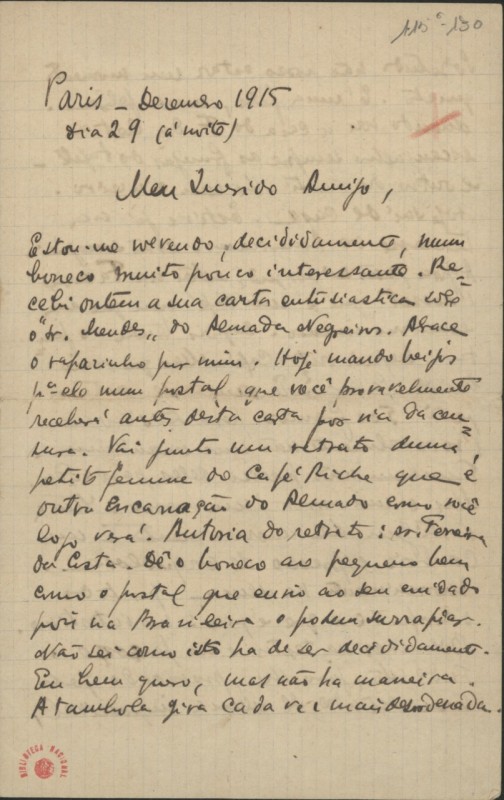 115⁵-130
Paris – Dezembro 1915
Dia 29 (á noite)
Meu Querido Amigo,
Estou-me volvendo, decididamente, num
boneco muito pouco interessante. Re-
cebi ontem a sua carta entusiastica sobre
o "sr. Mendes" do Almada Negreiros. Abrace
o rapazinho por mim. Hoje mando beijos
pª elo num postal que você provavelmente
receberá antes desta carta por via da cen-
sura. Vai junto um retrato duma
petite femme do Café Riche que é
outra Encarnação do Almada como você
logo verá. Autoria do retrato: sr. Ferreira
da Costa. Dê o boneco ao pequeno bem
como o postal que envio ao seu cuidado
pois na Brasileira o podem surrapiar.
Não sei como isto ha de ser decididamente.
Eu bem quero, mas não ha maneira.
A tombola gira cada vez mais desordenada.
BIBLIOTECA NACIONAL